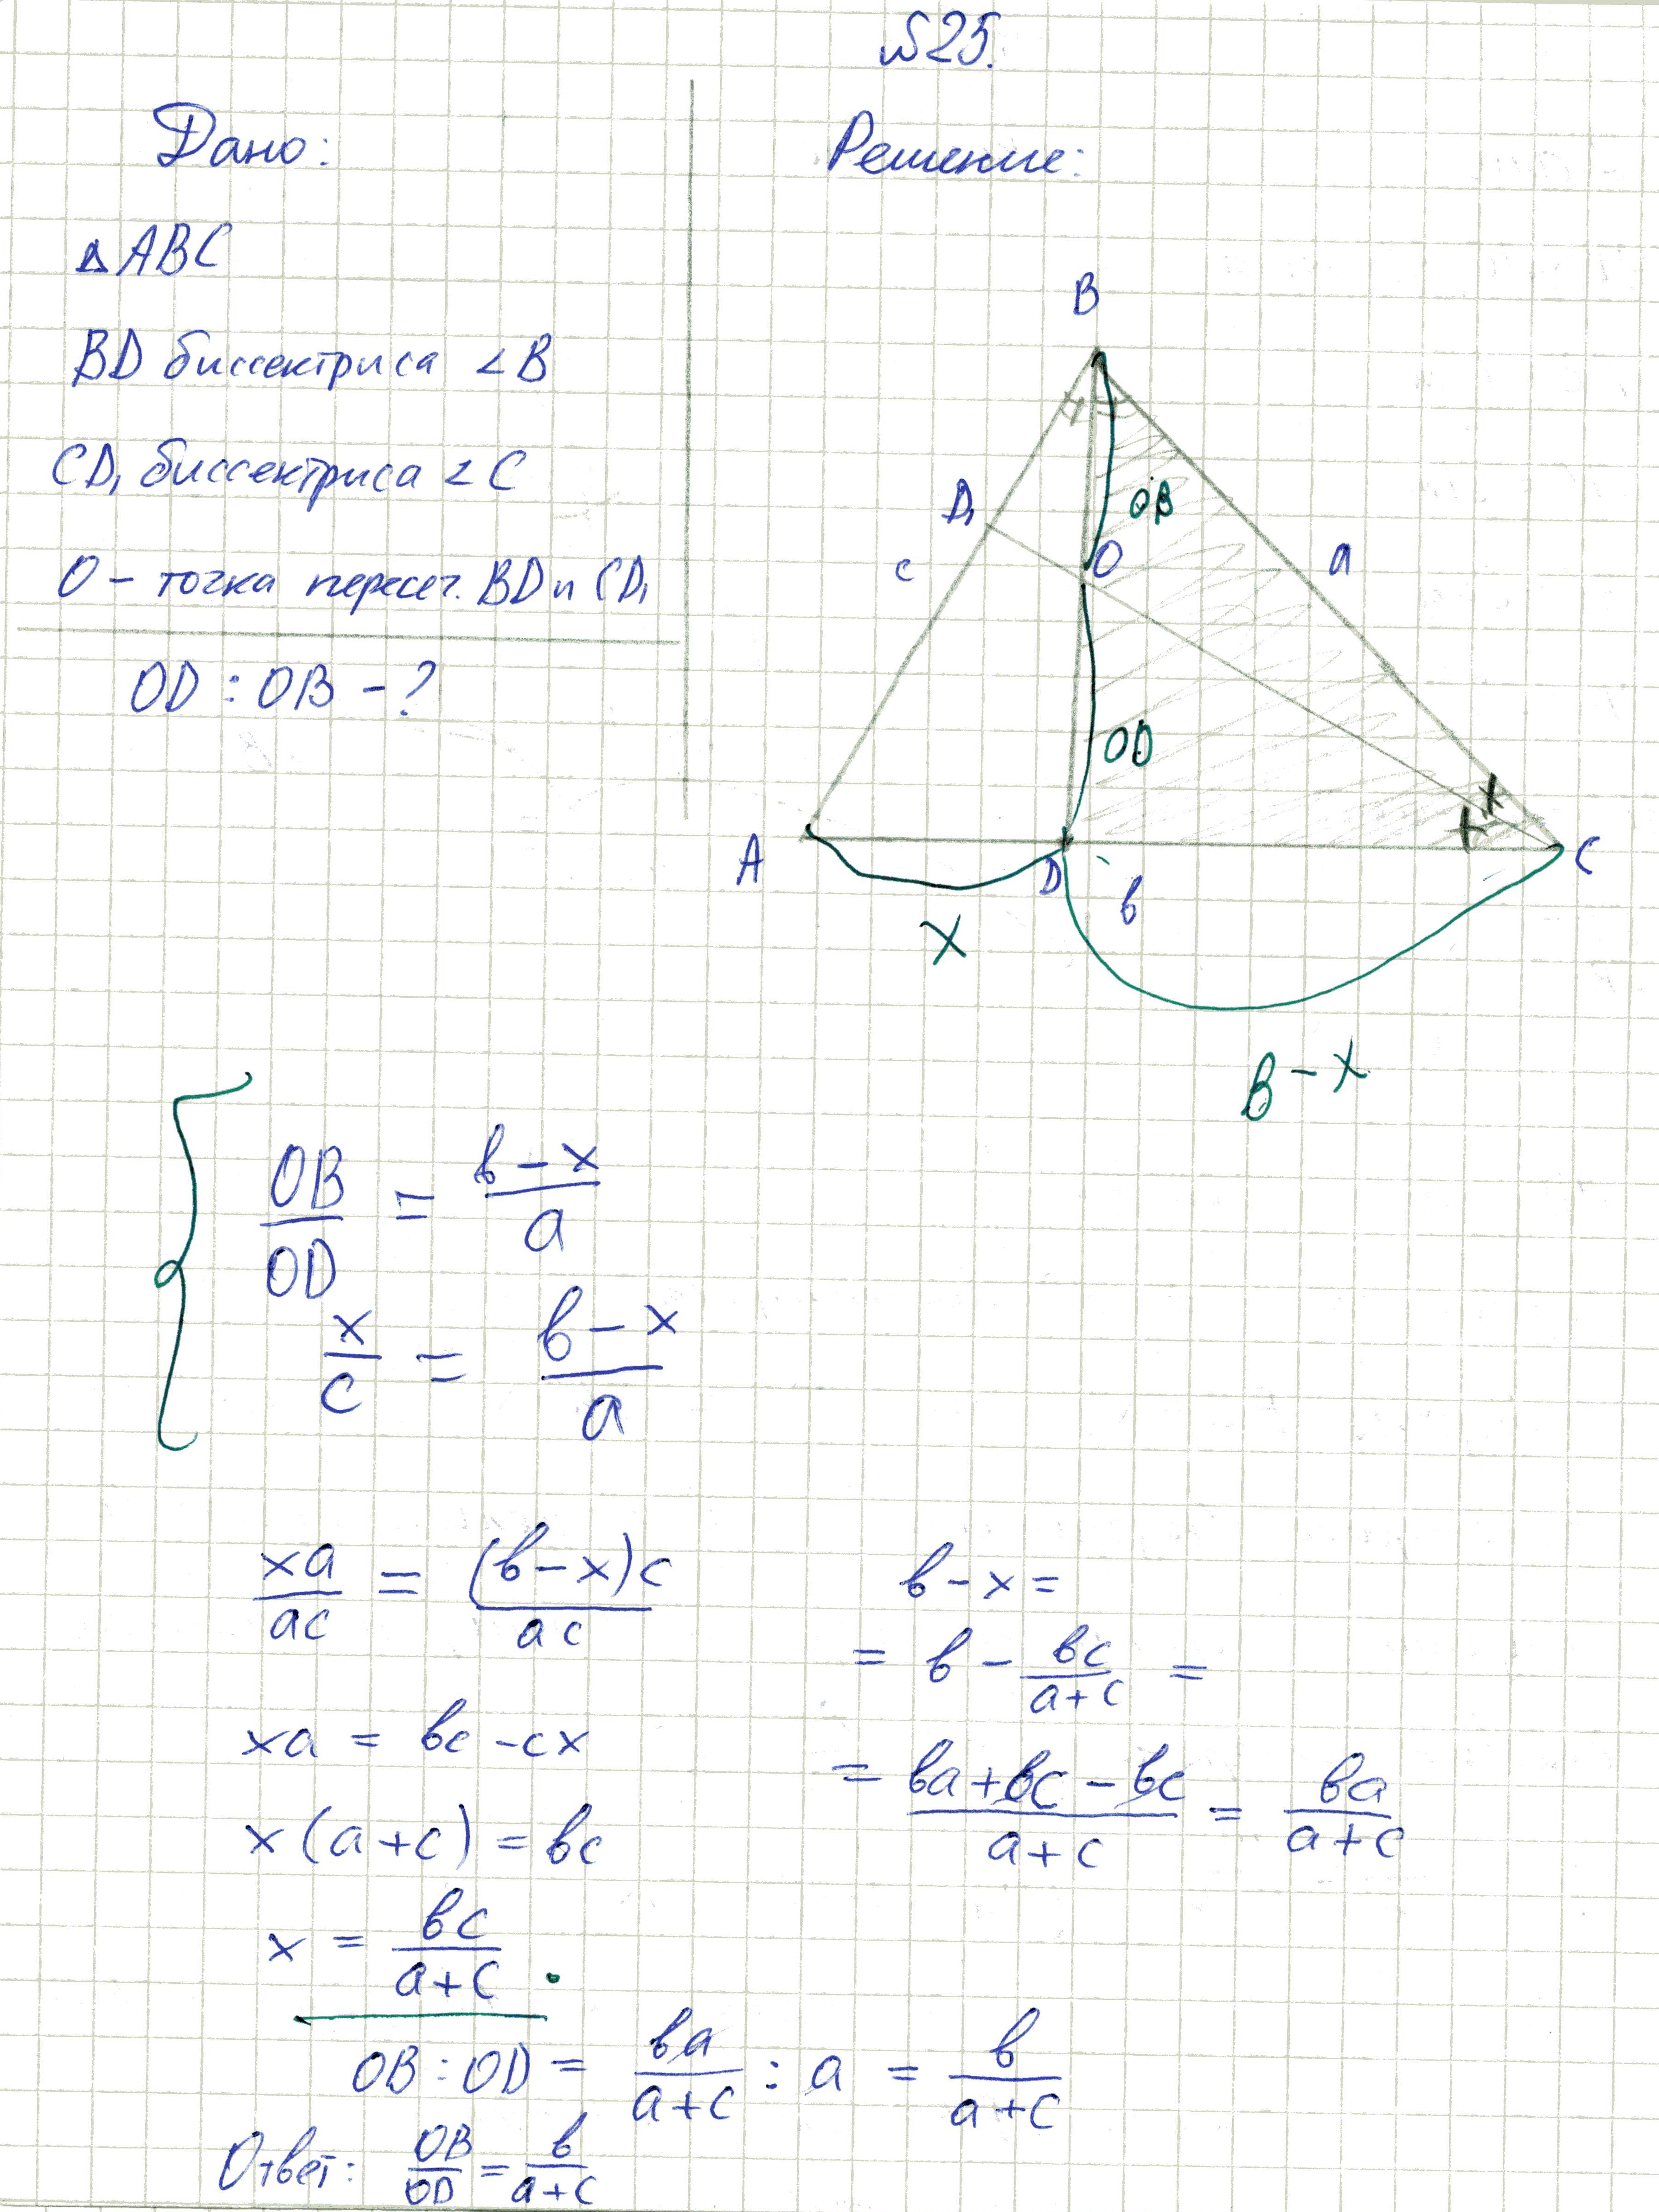 №25.
Дано:
Решение:
△ABC
BD биссектриса <B
CD₁ биссектриса <C
O – точка пересеч. BD и CD₁
OD : OB – ?
B
D₁
OB
c
O
a
OD
A
D
C
x
в
в – x
OB/OD = (в – x)/a
x/c = (в – x)/a
xa/ac = (в – x)c/ac
xa = вc – cx
x(a+c) = вc
x = вc/(a+c)
в – x =
= в – вc/(a+c) =
= (вa + вc – вc)/(a+c) = вa/(a+c)
OB : OD = вa/(a+c) : a = в/(a+c)
Ответ: OB/OD = в/(a+c)